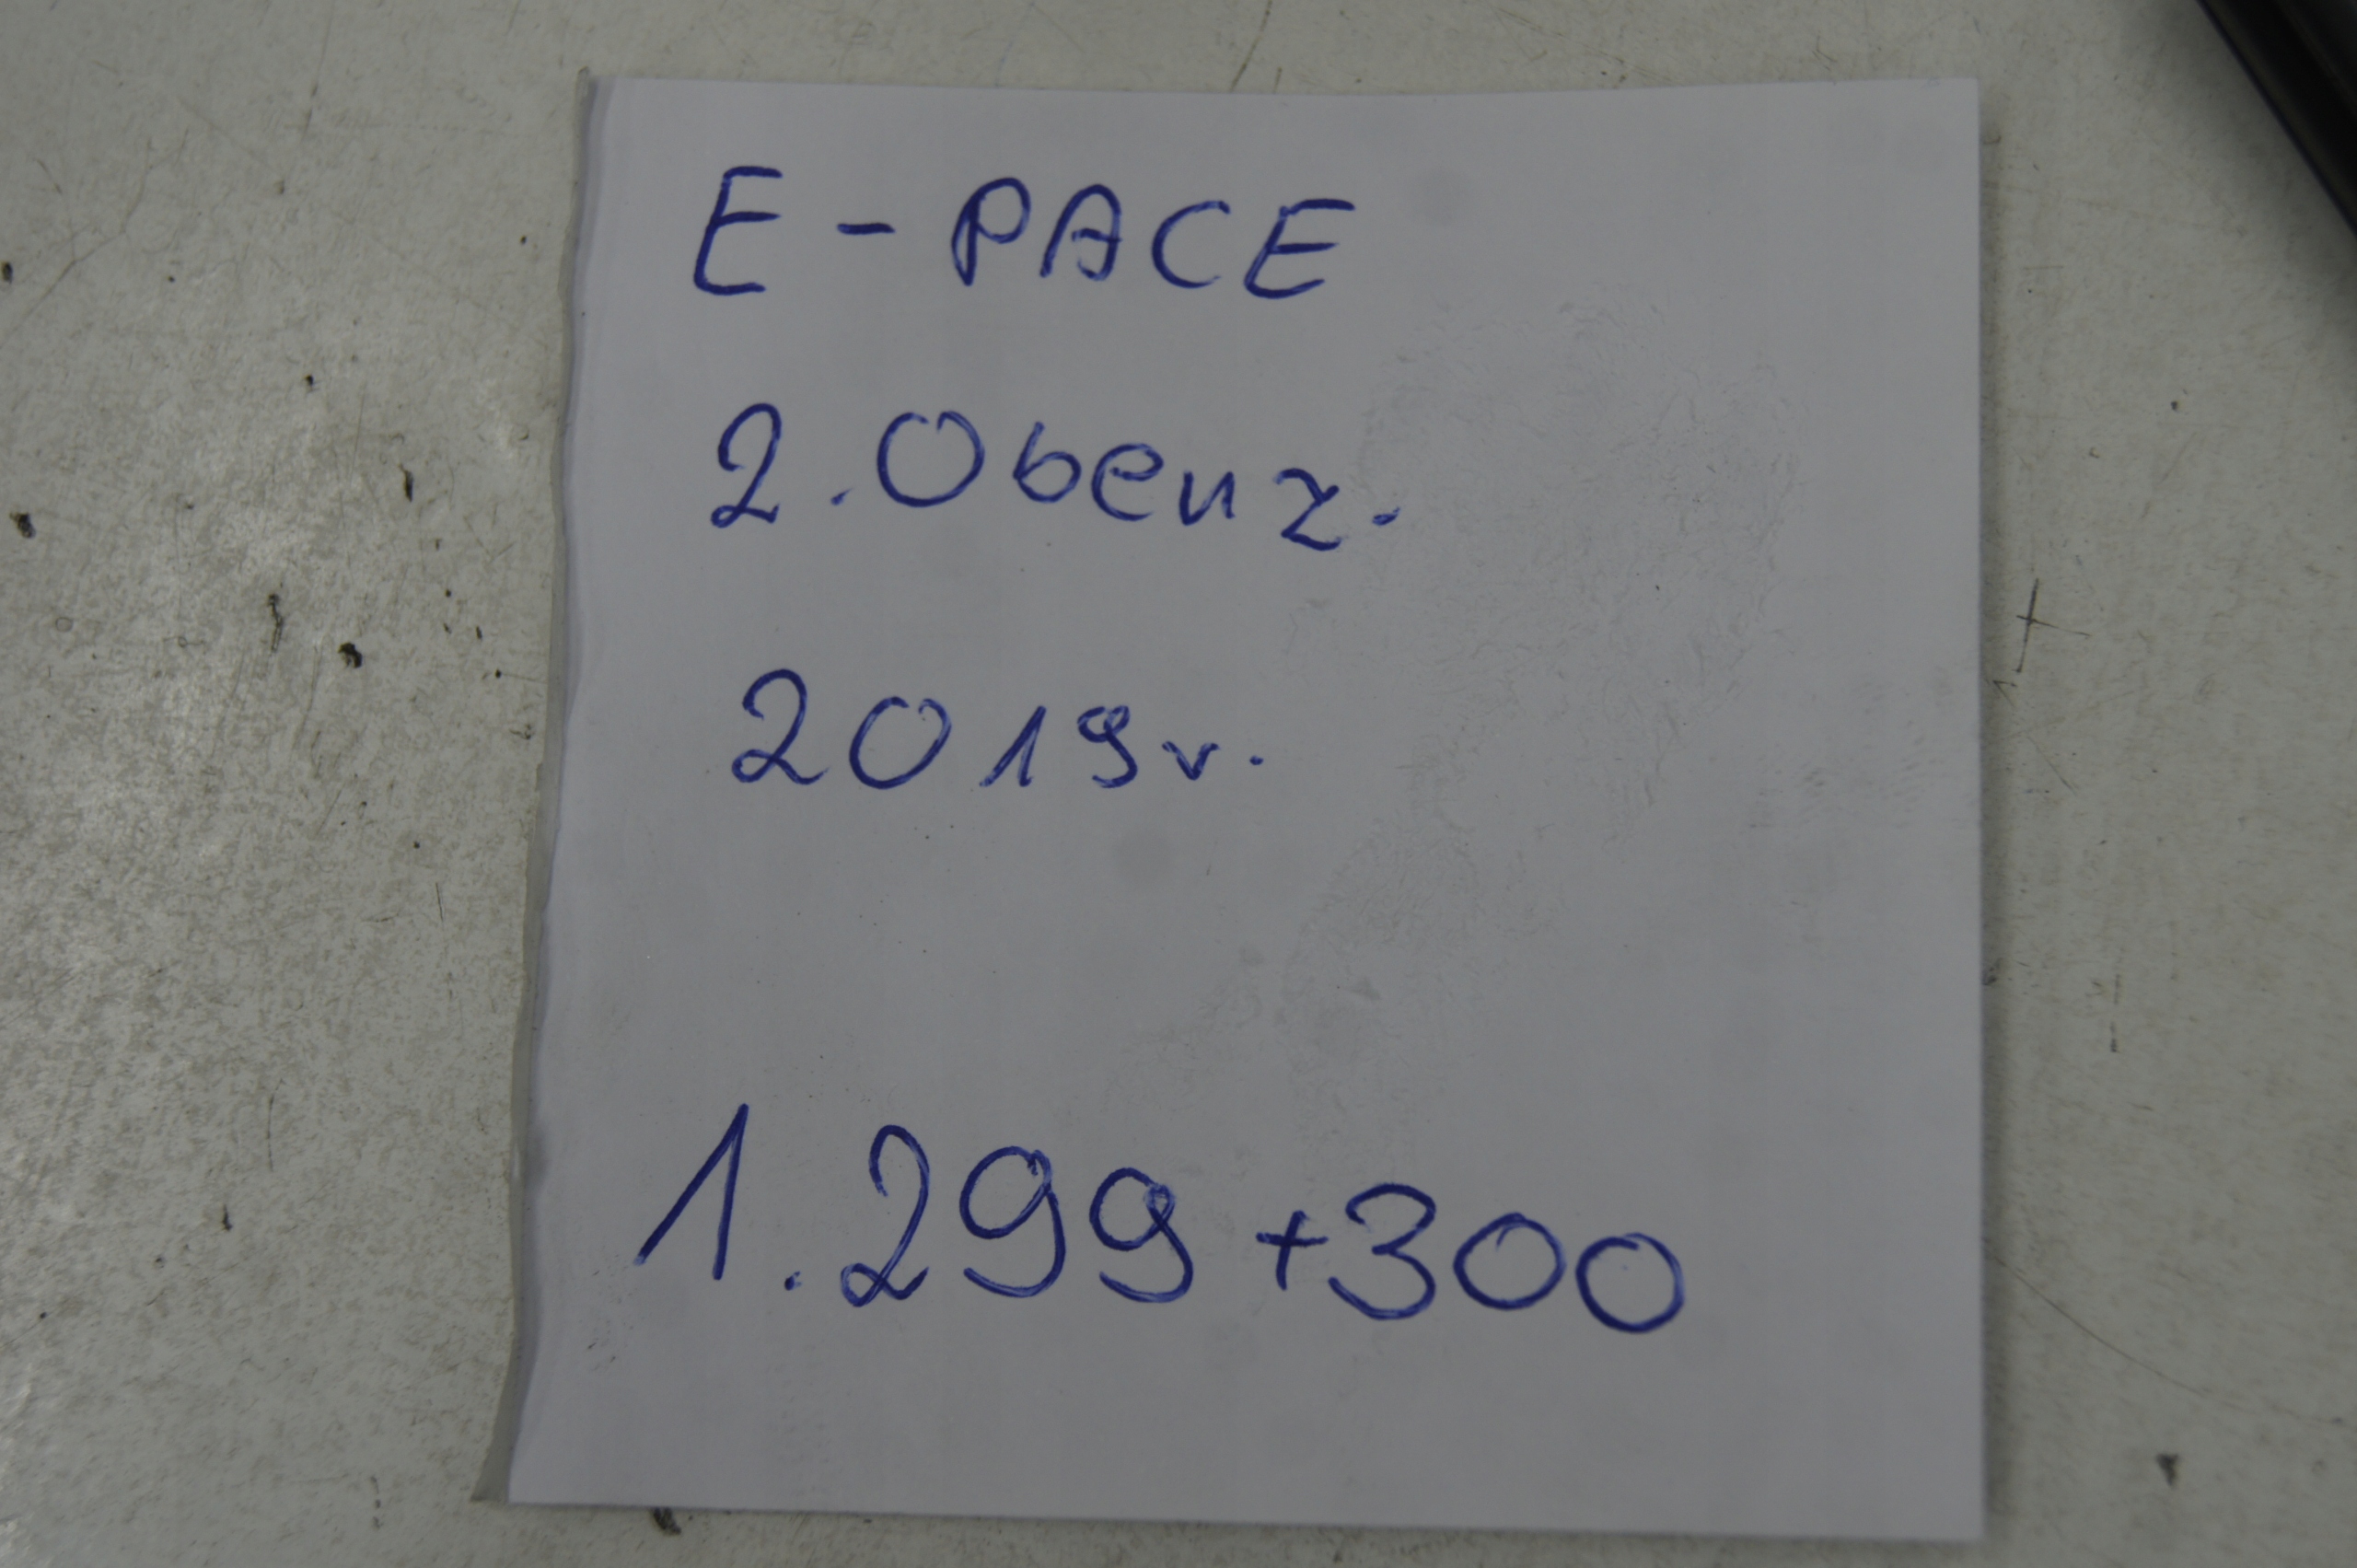 E-PACE
2.0benz.
2019r.
1.299+300